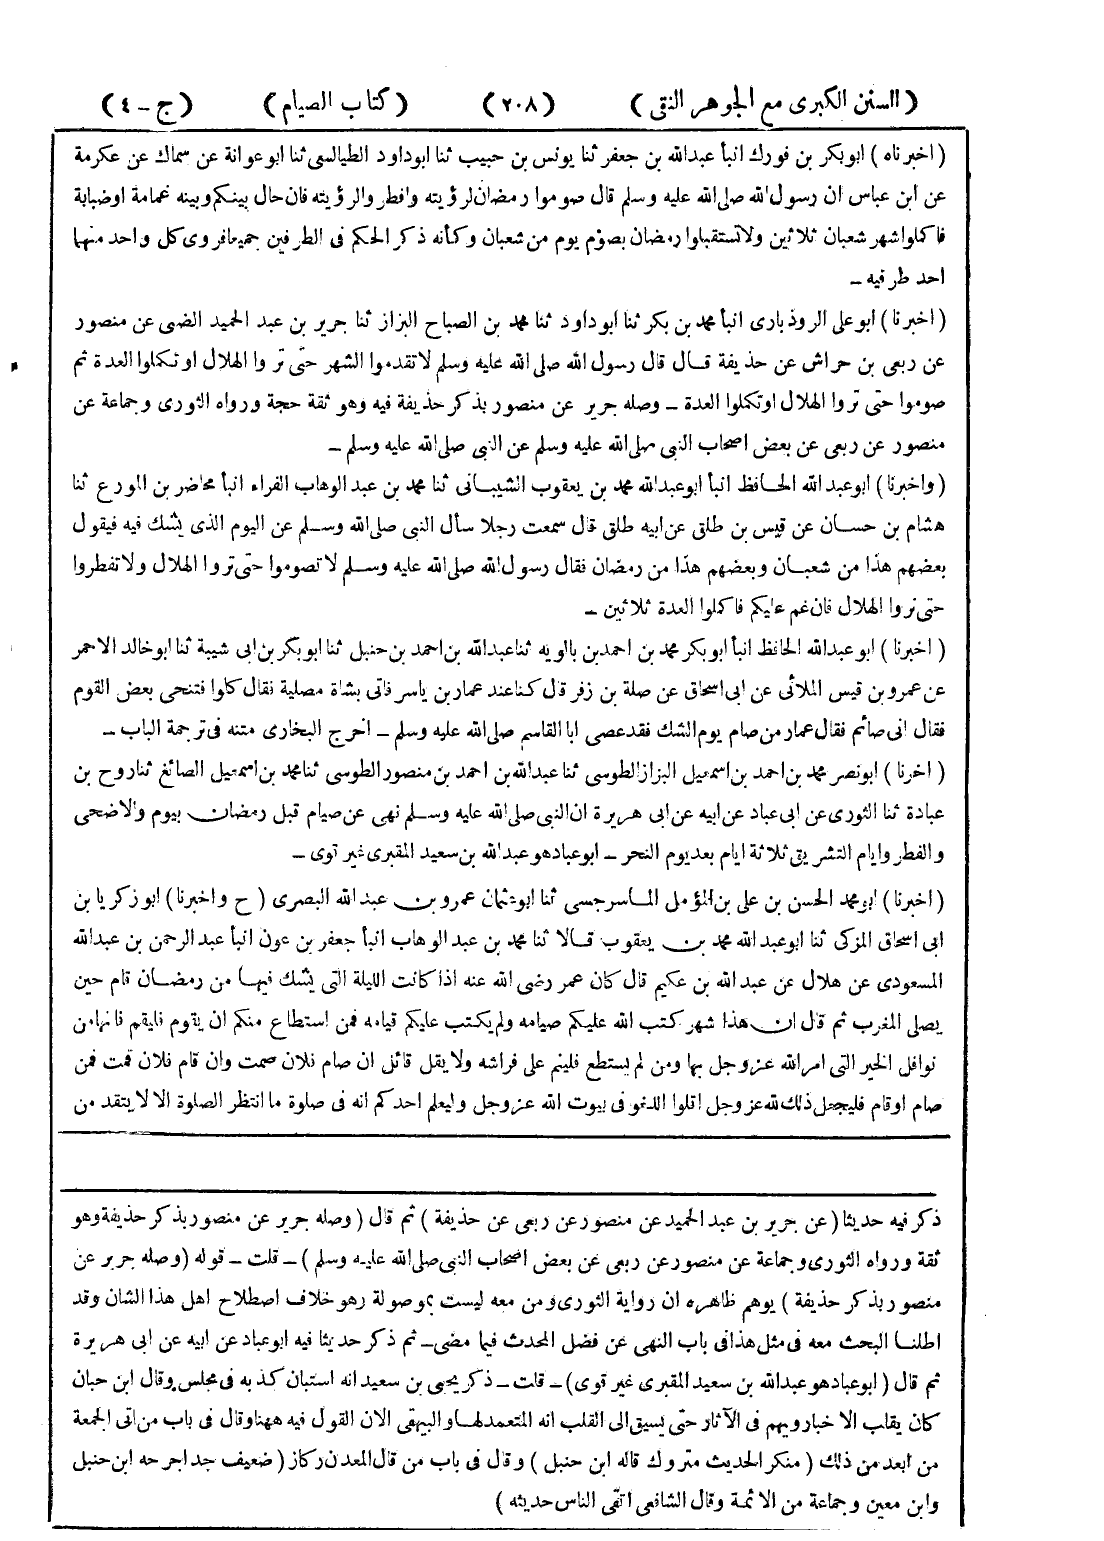 ( السنن الكبرى مع الجوهر النقى ) (٢٠٨) ( كتاب الصيام ) ( ج ـ ٤ )
( اخبرناه ) ابوبكر بن فورك انبأ عبدالله بن جعفر ثنا يونس بن حبيب ثنا ابوداود الطيالسى ثنا ابوعوانة عن سماك عن عكرمة
عن ابن عباس ان رسول الله صلى الله عليه وسلم قال صوموا رمضان لرؤيته وافطروا لرؤيته فان حال بينكم وبينه غمامة اوضبابة
فاكملوا شهر شعبان ثلاثين ولاتستقبلوا رمضان بصوم يوم من شعبان وكأنه ذكر الحكم فى الطرفين جميعا فروى كل واحد منهما
احد طرفيه ـ
( اخبرنا ) ابوعلى الروذبارى انبأ محمد بن بكر ثنا ابوداود ثنا محمد بن الصباح البزاز ثنا جرير بن عبد الحميد الضبى عن منصور
عن ربعى بن حراش عن حذيفة قال قال رسول الله صلى الله عليه وسلم لاتقدموا الشهر حتى تروا الهلال اوتكملوا العدة ثم
صوموا حتى تروا الهلال اوتكملوا العدة ـ وصله جرير عن منصور بذكر حذيفة فيه وهو ثقة حجة ورواه الثورى وجماعة عن
منصور عن ربعى عن بعض اصحاب النبى صلى الله عليه وسلم عن النبى صلى الله عليه وسلم ـ
( واخبرنا ) ابوعبد الله الحافظ انبأ ابوعبدالله محمد بن يعقوب الشيبانى ثنا محمد بن عبد الوهاب الفراء انبأ محاضر بن المورع ثنا
هشام بن حسان عن قيس بن طلق عن ابيه طلق قال سمعت رجلا سأل النبى صلى الله وسلم عن اليوم الذى يشك فيه فيقول
بعضهم هذا من شعبان وبعضهم هذا من رمضان فقال رسول الله صلى الله عليه وسلم لاتصوموا حتى تروا الهلال ولاتفطروا
حتى تروا الهلال فان غم عليكم فاكملوا العدة ثلاثين ـ
( اخبرنا ) ابوعبدالله الحافظ انبأ ابوبكر محمد بن احمد بن بالويه ثنا عبدالله بن احمد بن حنبل ثنا ابوبكر بن ابى شيبة ثنا ابوخالد الاحمر
عن عمرو بن قيس الملائى عن ابى اسحاق عن صلة بن زفر قال كنا عند عمار بن ياسر فاتى بشاة مصلية فقال كلوا فتنحى بعض القوم
فقال انى صائم فقال عمار من صام يوم الشك فقد عصى ابا القاسم صلى الله عليه وسلم ـ اخرج البخارى متنه فى ترجمة الباب ـ
( اخبرنا ) ابونصر محمد بن احمد بن اسمعيل البزاز الطوسى ثنا عبدالله بن احمد بن منصور الطوسى ثنا محمد بن اسمعيل الصائغ ثنا روح بن
عبادة ثنا الثورى عن ابى عباد عن ابيه عن ابى هريرة ان النبى صلى الله عليه وسلم نهى عن صيام قبل رمضان بيوم والاضحى
والفطر وايام التشريق ثلاثة ايام بعد يوم النحر ـ ابوعباد هو عبدالله بن سعيد المقبرى غير قوى ـ
( اخبرنا ) ابومحمد الحسن بن على بن المؤمل الماسرجسى ثنا ابوعثمان عمرو بن عبدالله البصرى ( ح واخبرنا ) ابوزكريا بن
ابى اسحاق المزكى ثنا ابوعبد الله محمد بن يعقوب قالا ثنا محمد بن عبد الوهاب انبأ جعفر بن عون انبأ عبد الرحمن بن عبدالله
المسعودى عن هلال عن عبد الله بن عكيم قال كان عمر رضى الله عنه اذا كانت الليلة التى يشك فيها من رمضان قام حين
يصلى المغرب ثم قال ان هذا شهر كتب الله عليكم صيامه ولم يكتب عليكم قيامه فمن استطاع منكم ان يقوم فليقم فانها من
نوافل الخير التى امر الله عزوجل بها ومن لم يستطع فلينم على فراشه ولا يقل قائل ان صام فلان صمت وان قام فلان قمت فمن
صام اوقام فليجعل ذلك لله عزوجل اقلوا اللغو فى بيوت الله عزوجل وليعلم احدكم انه فى صلوة ما انتظر الصلوة الا لا يتقد من
ذكر فيه حديثا ( عن جرير بن عبد الحميد عن منصور عن ربعى عن حذيفة ) ثم قال ( وصله جرير عن منصور بذكر حذيفة وهو
ثقة ورواه الثورى وجماعة عن منصور عن ربعى عن بعض اصحاب النبى صلى الله عليه وسلم ) ـ قلت ـ قوله ( وصله جرير عن
منصور بذكر حذيفة ) يوهم ظاهره ان رواية الثورى ومن معه ليست بموصولة وهو خلاف اصطلاح اهل هذا الشان وقد
اطلنا البحث معه فى مثل هذا فى باب النهى عن فضل المحدث فيما مضى ـ ثم ذكر حديثا فيه ابوعباد عن ابيه عن ابى هريرة
ثم قال ( ابوعباد هو عبدالله بن سعيد المقبرى غير قوى ) ـ قلت ـ ذكر يحيى بن سعيد انه استبان كذبه فى مجلس وقال ابن حبان
كان يقلب الاخبار ويهم فى الآثار حتى يسبق الى القلب انه المتعمد لها والبيهقى الان القول فيه ههنا وقال فى باب من اتى الجمعة
من ابعد من ذلك ( منكر الحديث متروك قاله ابن حنبل ) وقال فى باب من قال المعدن ركاز ( ضعيف جدا جرحه ابن حنبل
وابن معين وجماعة من الائمة وقال الشافعى اتقى الناس حديثه )